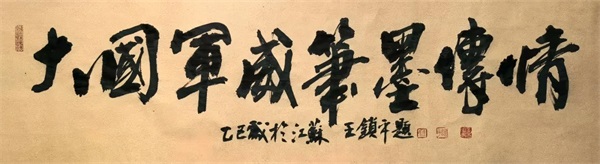 大國軍威筆墨傳情
乙巳歲於江蘇 王鎮平題